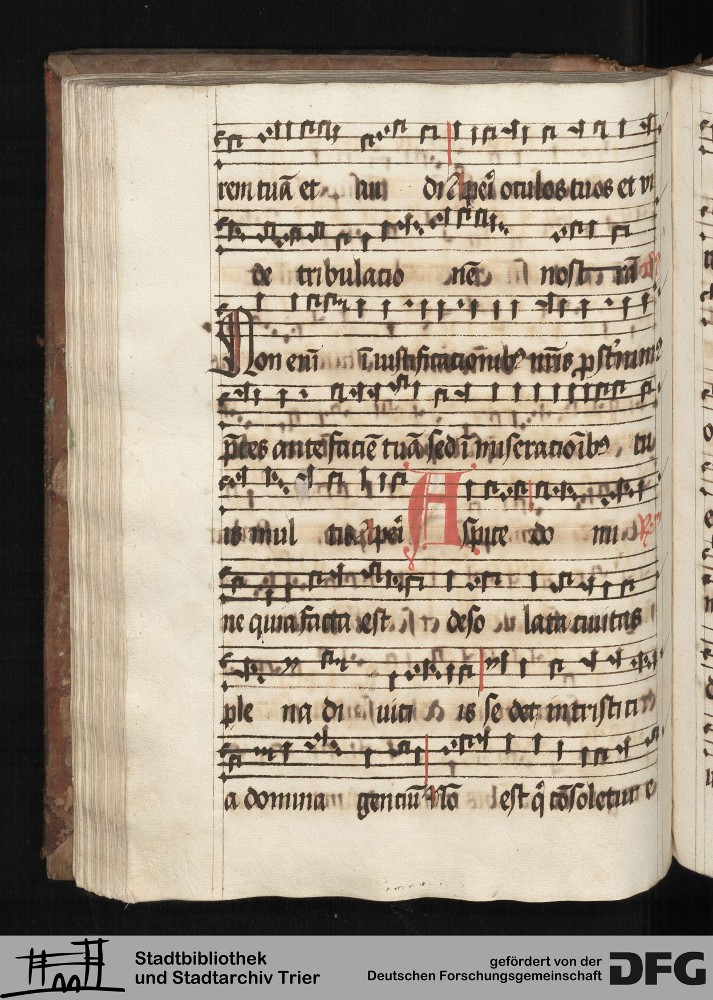 rem tuā et au di Apeī oculos tuos et vi
de tribulacio nē nost rā
Non enī ī iustificacionibꝰ nr̄is ꝓst'nim
p̄ces ante faciē tuā sed ī miseracioībꝰ tu
is mul tis Apeī Aspice do mi R
ne quia facta est deso lata ciuitas
ple na di uiti is se det in tristi ci
a domina genciū Nō est q̄ cōsoletur e
Stadtbibliothek
und Stadtarchiv Trier
gefördert von der
Deutschen Forschungsgemeinschaft
DFG